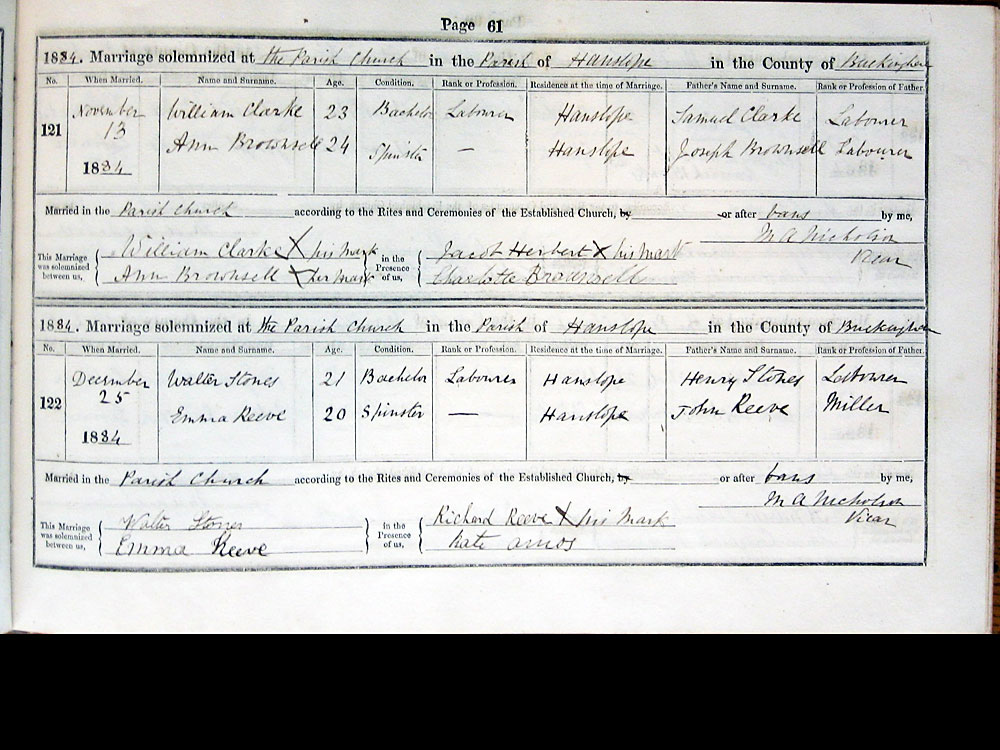 Page 61
1884. Marriage solemnized at the Parish Church in the Parish of Hanslope in the County of Buckingham
No. When Married. Name and Surname. Age. Condition. Rank or Profession. Residence at the time of Marriage. Father's Name and Surname. Rank or Profession of Father.
November William Clarke 23 Bachelor Labourer Hanslope Samuel Clarke Labourer
121 13
Ann Brownsell 24 Spinster — Hanslope Joseph Brownsell Labourer
1884
Married in the Parish Church according to the Rites and Ceremonies of the Established Church, by or after bans by me,
M A Nicholson
Vicar
This Marriage was solemnized between us, William Clarke X his Mark in the Presence of us, Jacob Herbert X his Mark
Ann Brownsell X her Mark Charlotte
1884. Marriage solemnized at the Parish Church in the Parish of Hanslope in the County of Buckingham
No. When Married. Name and Surname. Age. Condition. Rank or Profession. Residence at the time of Marriage. Father's Name and Surname. Rank or Profession of Father.
December Walter Stones 21 Bachelor Labourer Hanslope Henry Stones Labourer
122 25
Emma Reeve 20 Spinster — Hanslope John Reeve Miller
1884
Married in the Parish Church according to the Rites and Ceremonies of the Established Church, by or after bans by me,
M A Nicholson
Vicar
This Marriage was solemnized between us, Walter Stones in the Presence of us, Richard Reeve X his Mark
Emma Reeve Kate Amos